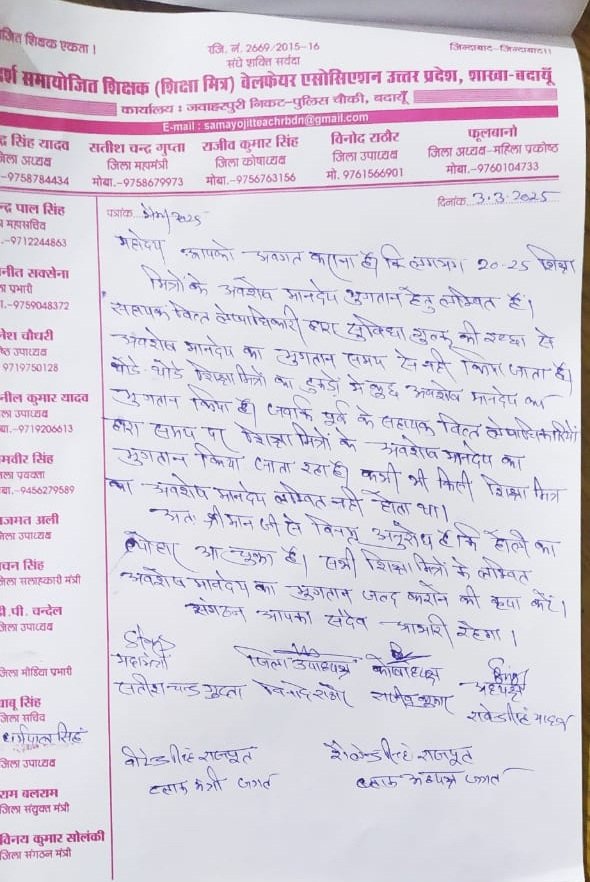 जित शिक्षक एकता !
रजि. नं. 2669/2015-16
जिन्दाबाद-जिन्दाबाद।।
संघे शक्ति सर्वदा
र्श समायोजित शिक्षक (शिक्षा मित्र) वेलफेयर एसोसिएशन उत्तर प्रदेश, शाखा-बदायूँ
कार्यालय : जवाहरपुरी निकट-पुलिस चौकी, बदायूँ
E-mail : samayojitteachrbdn@gmail.com
द्र सिंह यादव
जिला अध्यक्ष
-9758784434
सतीश चन्द्र गुप्ता
जिला महामंत्री
मोबा.-9758679973
राजीव कुमार सिंह
जिला कोषाध्यक्ष
मोबा.-9756763156
विनोद राठौर
जिला उपाध्यक्ष
मो. 9761566901
फूलबानो
जिला अध्यक्ष-महिला प्रकोष्ठ
मोबा.-9760104733
न्द्र पाल सिंह
महासचिव
.-9712244863
नीत सक्सेना
प्रभारी
1.-9759048372
नेश चौधरी
उपाध्यक्ष
9719750128
नील कुमार यादव
ला उपाध्यक्ष
बा.-9719206613
मवीर सिंह
ला प्रवक्ता
बा.-9456279589
जमत अली
जेला उपाध्यक्ष
चन सिंह
जेला सलाहकारी मंत्री
डी.पी. चन्देल
जिला उपाध्यक्ष
जिला मीडिया प्रभारी
बाबू सिंह
जिला सचिव
धर्मपाल सिंह
जिला उपाध्यक्ष
राम बलराम
जिला संयुक्त मंत्री
विनय कुमार सोलंकी
जिला संगठन मंत्री
पत्रांक /2025
दिनांक 3.3.2025
महोदय आपको अवगत कराना है कि लगभग 20-25 शिक्षा
मित्रों के अवशेष मानदेय भुगतान हेतु लम्बित हैं।
सहायक वित्त लेखाधिकारी द्वारा सुविधा शुल्क की इच्छा से
अवशेष मानदेय का भुगतान समय से नहीं किया जाता है।
थोडे-थोडे शिक्षा मित्रों का टुकडों में कुछ अवशेष मानदेय का
भुगतान किया है। जबकि पूर्व के सहायक वित्त लेखाधिकारियों
द्वारा समय पर शिक्षा मित्रों के अवशेष मानदेय का
भुगतान किया जाता रहा है। कभी भी किसी शिक्षा मित्र
का अवशेष मानदेय लम्बित नहीं होता था।
अतः श्रीमान जी से विनम्र अनुरोध है कि होली का
त्योहार आ चुका है। सभी शिक्षा मित्रों के लम्बित
अवशेष मानदेय का भुगतान जल्द कराने की कृपा करें।
संगठन आपका सदैव आभारी रहेगा।
महामंत्री
सतीश चन्द्र गुप्ता
जिला उपाध्यक्ष
विनोद राठौर
कोषाध्यक्ष
राजीव कुमार
अध्यक्ष
सिंह यादव
सिंह राजपूत
ब्लाक मंत्री जगत
सिंह राजपूत
ब्लाक अध्यक्ष जगत